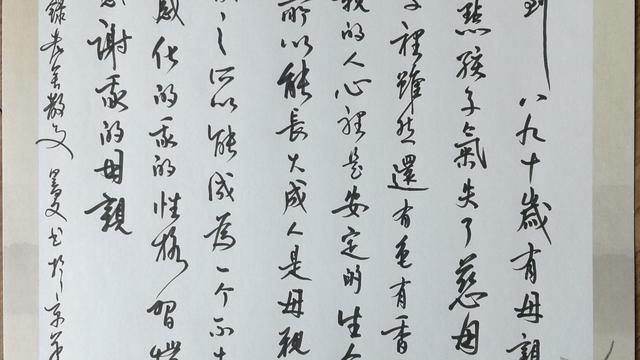 到八九十歲有母親
點孩子氣失了慈母
子裡雖然還有色有香
親的人心裡是安定的生命
所以能長大成人是母親
之所以能成為一个不
感化的我的性格習慣
謝我的母親
錄老舍散文 書於京華